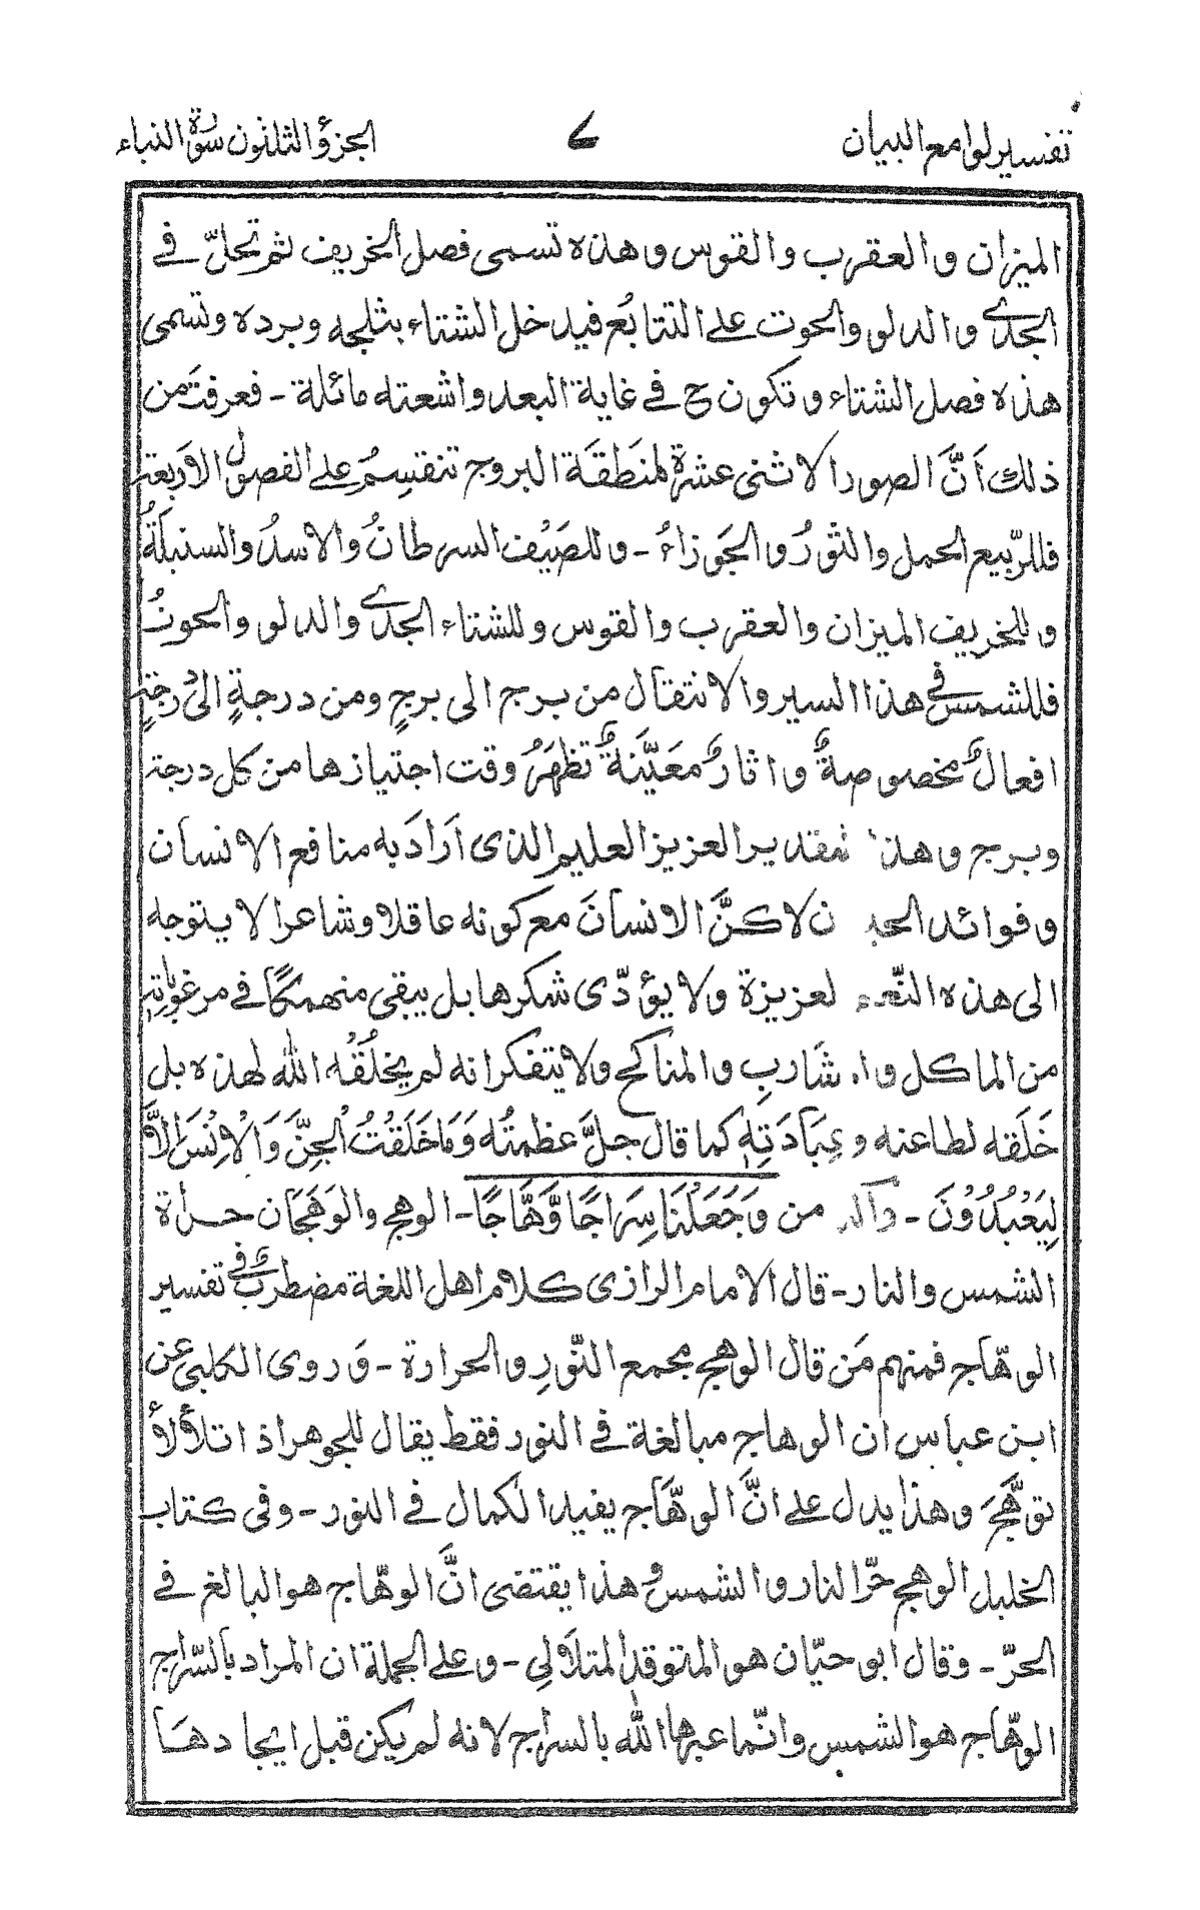 تفسير لوامع البيان
٧
الجزؤ الثلثون سورة النباء
الميزان والعقرب والقوس وهذه تسمى فصل الخريف ثم تحلّ في
الجدي والدلو والحوت على التتابُع فيدخل الشتاء بثلجه وبرده وتسمى
هذه فصل الشتاء وتكون ح في غاية البعد واشعته مائلة - فعرفتَ من
ذلك اَنَّ الصور الاثنى عشرة لمنَطقَة البروج تنقسِمُ على الفصول الاَربعة
فللرّبيع الحمل والثورُ والجَوزاءُ - وللصَيْف السرطانُ والاسدُ والسنبلَةُ
وللخريف الميزان والعقرب والقوس وللشتاء الجدي والدلو والحوتُ
فللشمس في هذا السير والانتقال من برج الى برجٍ ومن درجةٍ الى درجةٍ
افعالٌ مخصوصةٌ واثارٌ معَيّنةٌ تظهَرُ وقت اجتيازها من كل درجة
وبرج وهذا تقدير العزيز العليم الذى اَرادَ به منافع الانسان
وفوائد ن لاكنَّ الانسانَ مع كونه عاقلا وشاعرا لا يتوجه
الى هذه لعزيزة ولا يؤدّى شكرها بل يبقى منهمكًا في مرغوباتِهٖ
من الماكل شَارِبِ والمناكح ولا يتفكر انه لم يخلُقْه اللّٰه لهذه بل
خَلَقه لطاعته وعِبَادَتِهٖ كما قال جلَّ عظمتُه وَمَا خَلَقْتُ الْجِنَّ وَالْاِنْسَ اِلَّا
لِيَعْبُدُوْنَ - من وَجَعَلْنَا سِرَاجًا وَّهَّاجًا - الوهج والوَهَجَان حرارة
الشمس والنار - قال الامام الرازى كلام اهل اللغة مضطربٌ في تفسير
الوهّاج فمنهم مَن قال الوهج مجمع النّورِ والحرارة - وَروى الكلبى عن
ابن عباس ان الوهاج مبالغة في النور فقط يقال للجوهر اذا تلأْلأَ
توَهَّجَ وهذا يدل على انَّ الوهّاج يفيد الكمال في النور - وفى كتاب
الخليل الوهج حرّ النار والشمس وهذا يقتضى انَّ الوهّاج هو البالغ في
الحرّ - وقال ابو حيّان هو المتوقد المتلألى - وعلى الجملة ان المراد بالسّراج
الوهّاج هو الشمس وانّما عبرها اللّٰه بالسراج لانه لم يكن قبل ايجادها